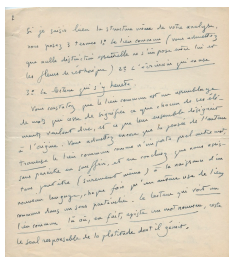 Si je saisis bien la structure même de votre analyse,
vous posez 3 termes: 1º le lieu commun (vous admettez
que nulle distinction essentielle ne s'impose entre lui et
les fleurs de rhétorique) 2º l'écrivain qui en use
3º le lecteur qui s'y heurte
Vous constatez que le lieu commun est un assemblage
de mots qui use de signifier ce que chacun de ses élé-
ments voulait dire, et ce que leur ensemble désignait
à l'origine. Vous admettez encore que la pensée de l'auteur
traverse le lieu commun comme n'importe quel autre mot,
sans prendre en
peut-être (sûrement même) à la naissance d'un
nouveau langage, chaque fois qu'un auteur use de lieu
commun dans un sens particulier. Le lecteur qui voit un
lieu commun là où, en fait, existe un mot nouveau, reste
le seul responsable de la platitude dont il gémit.